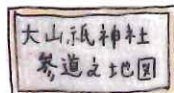 大山祇神社
参道之地図